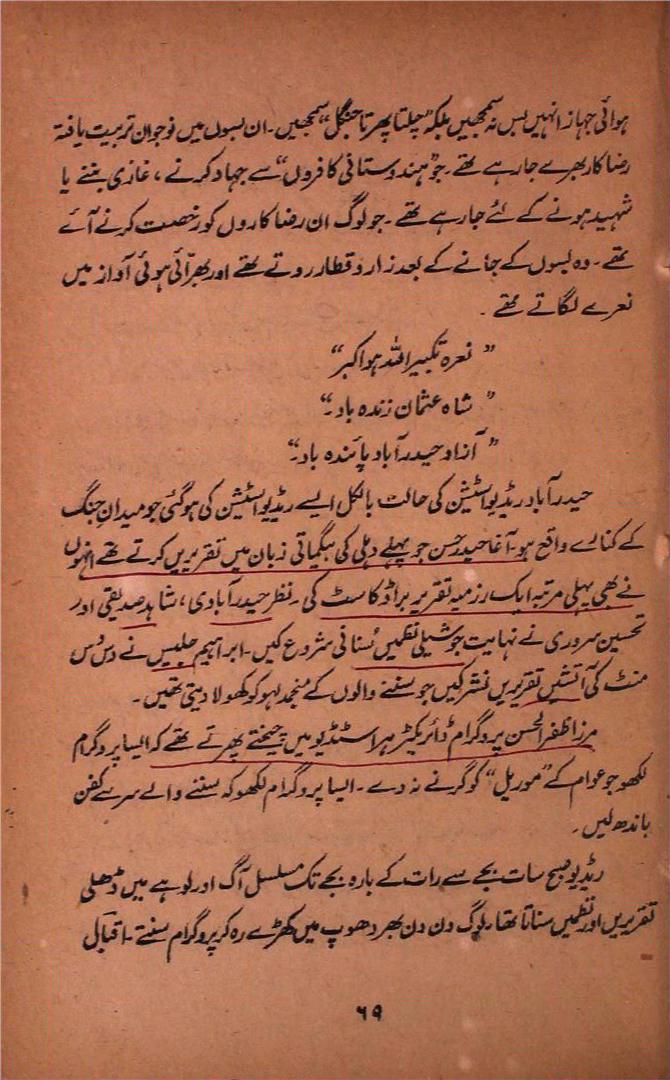 ہوائی جہاز انہیں بس نہ سمجھیں بلکہ ”چلتا پھرتا جنگل“ سمجھیں۔ ان بسوں میں نوجوان تربیت یافتہ
رضا کار بھرے جا رہے تھے۔ جو ”ہندوستانی کافروں“ سے جہاد کرنے ، غازی بننے یا
شہید ہونے کے لئے جا رہے تھے ۔ جو لوگ ان رضا کاروں کو رخصت کرنے آئے
تھے ۔ وہ بسوں کے جانے کے بعد زار و قطار روتے تھے اور بھرّائی ہوئی آواز میں
نعرے لگاتے تھے ۔
” نعرہ تکبیر اللہ ہو اکبر“
” شاہ عثمان زندہ باد ۔“
” آزاد حیدرآباد پائندہ باد ۔“
حیدرآباد ریڈیو اسٹیشن کی حالت بالکل ایسے ریڈیو اسٹیشن کی ہو گئی جو میدانِ جنگ
کے کنارے واقع ہو۔ آغا حیدر حسن جو پہلے دہلی کی بیگماتی زبان میں تقریریں کرتے تھے انہوں
نے بھی پہلی مرتبہ ایک رزمیہ تقریر براڈ کاسٹ کی ۔ نظر حیدرآبادی ، شاہد صدیقی اور
تحسین سروری نے نہایت جوشیلی نظمیں سُنانی شروع کیں۔ ابراہیم جلیس نے دس دس
منٹ کی آتشیں تقریریں نشر کیں جو سننے والوں کے منجمد لہو کو کھولا دیتی تھیں ۔
مرزا ظفر الحسن پروگرام ڈائریکٹر ہر اسٹڈیو میں چیختے پھرتے تھے کہ ایسا پروگرام
لکھو جو عوام کے ”موریل“ کو گرنے نہ دے ۔ ایسا پروگرام لکھو کہ سننے والے سر سے کفن
باندھ لیں ۔
ریڈیو صبح سات بجے سے رات کے بارہ بجے تک مسلسل آگ اور لوہے میں ڈھلی
تقریریں اور نظمیں سناتا تھا۔ لوگ دن دن بھر دھوپ میں کھڑے رہ کر پروگرام سنتے ۔ اقبال
۶۹